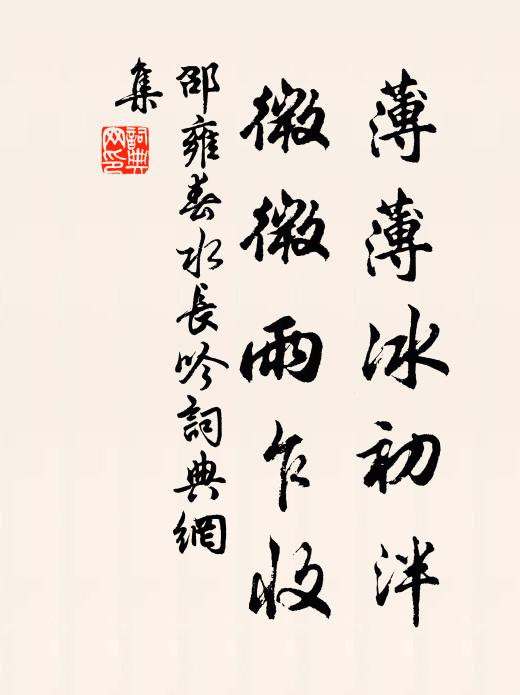 薄薄冰初泮
微微雨乍收
邵雍春水長吟詞典網
集
詞典
网印